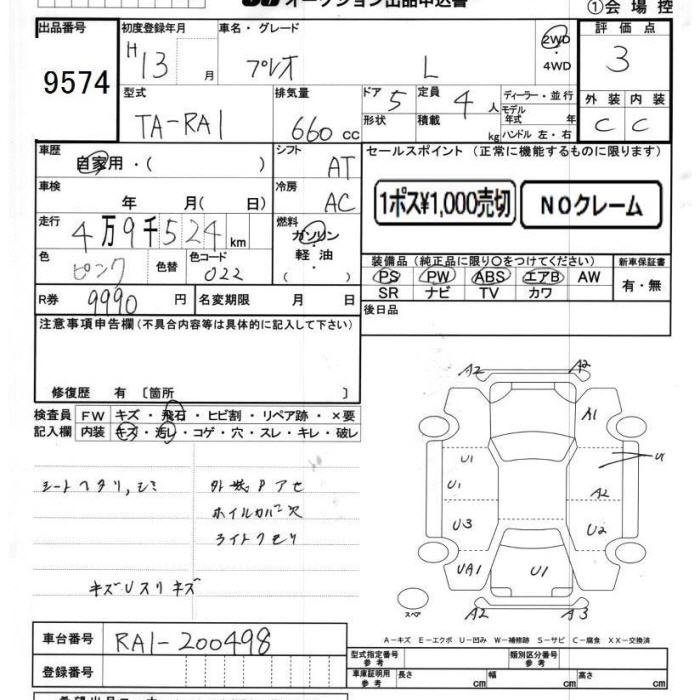 オークション出品申込書
①会場控
出品番号
9574
初度登録年月
H13 月
車名・グレード
プレオ L
2WD
・
4WD
評価点
3
外装 内装
C C
型式
TA-RA1
排気量
660 cc
ドア 5
形状
定員 4 人
積載 kg
ディーラー・並行
モデル
年式 年
ハンドル 左・右
車歴
自家用・( )
シフト
AT
車検
年 月( 日)
冷房
AC
走行
4万9千524 km
燃料
ガソリン
・
軽油
( )
色
ピンク
色替
色コード
022
R券 9990 円
名変期限 月 日
セールスポイント (正常に機能するものに限ります)
1ポス¥1,000売切
NOクレーム
装備品 (純正品に限り○をつけてください)
新車保証書
PS PW ABS エアB AW
SR ナビ TV カワ
有・無
後日品
注意事項申告欄(不具合内容等は具体的に記入して下さい)
修復歴 有 〔箇所 〕
検査員
記入欄
FW キズ・飛石・ヒビ割・リペア跡・×要
内装 キズ・汚レ・コゲ・穴・スレ・キレ・破レ
シートヘタリ,シミ
外装Pアセ
ホイルカバー欠
ライトクモリ
キズUスリキズ
A2 A2
A1
U1 U
U1 A2
U3 U2
UA1 U1
スペア
A2 A3
A－キズ E－エクボ U－凹み W－補修跡 S－サビ C－腐食 XX－交換済
車台番号 RA1-200498
登録番号
型式指定番号
参考
類別区分番号
参考
車庫証明用
参考
長さ cm 幅 cm 高さ cm